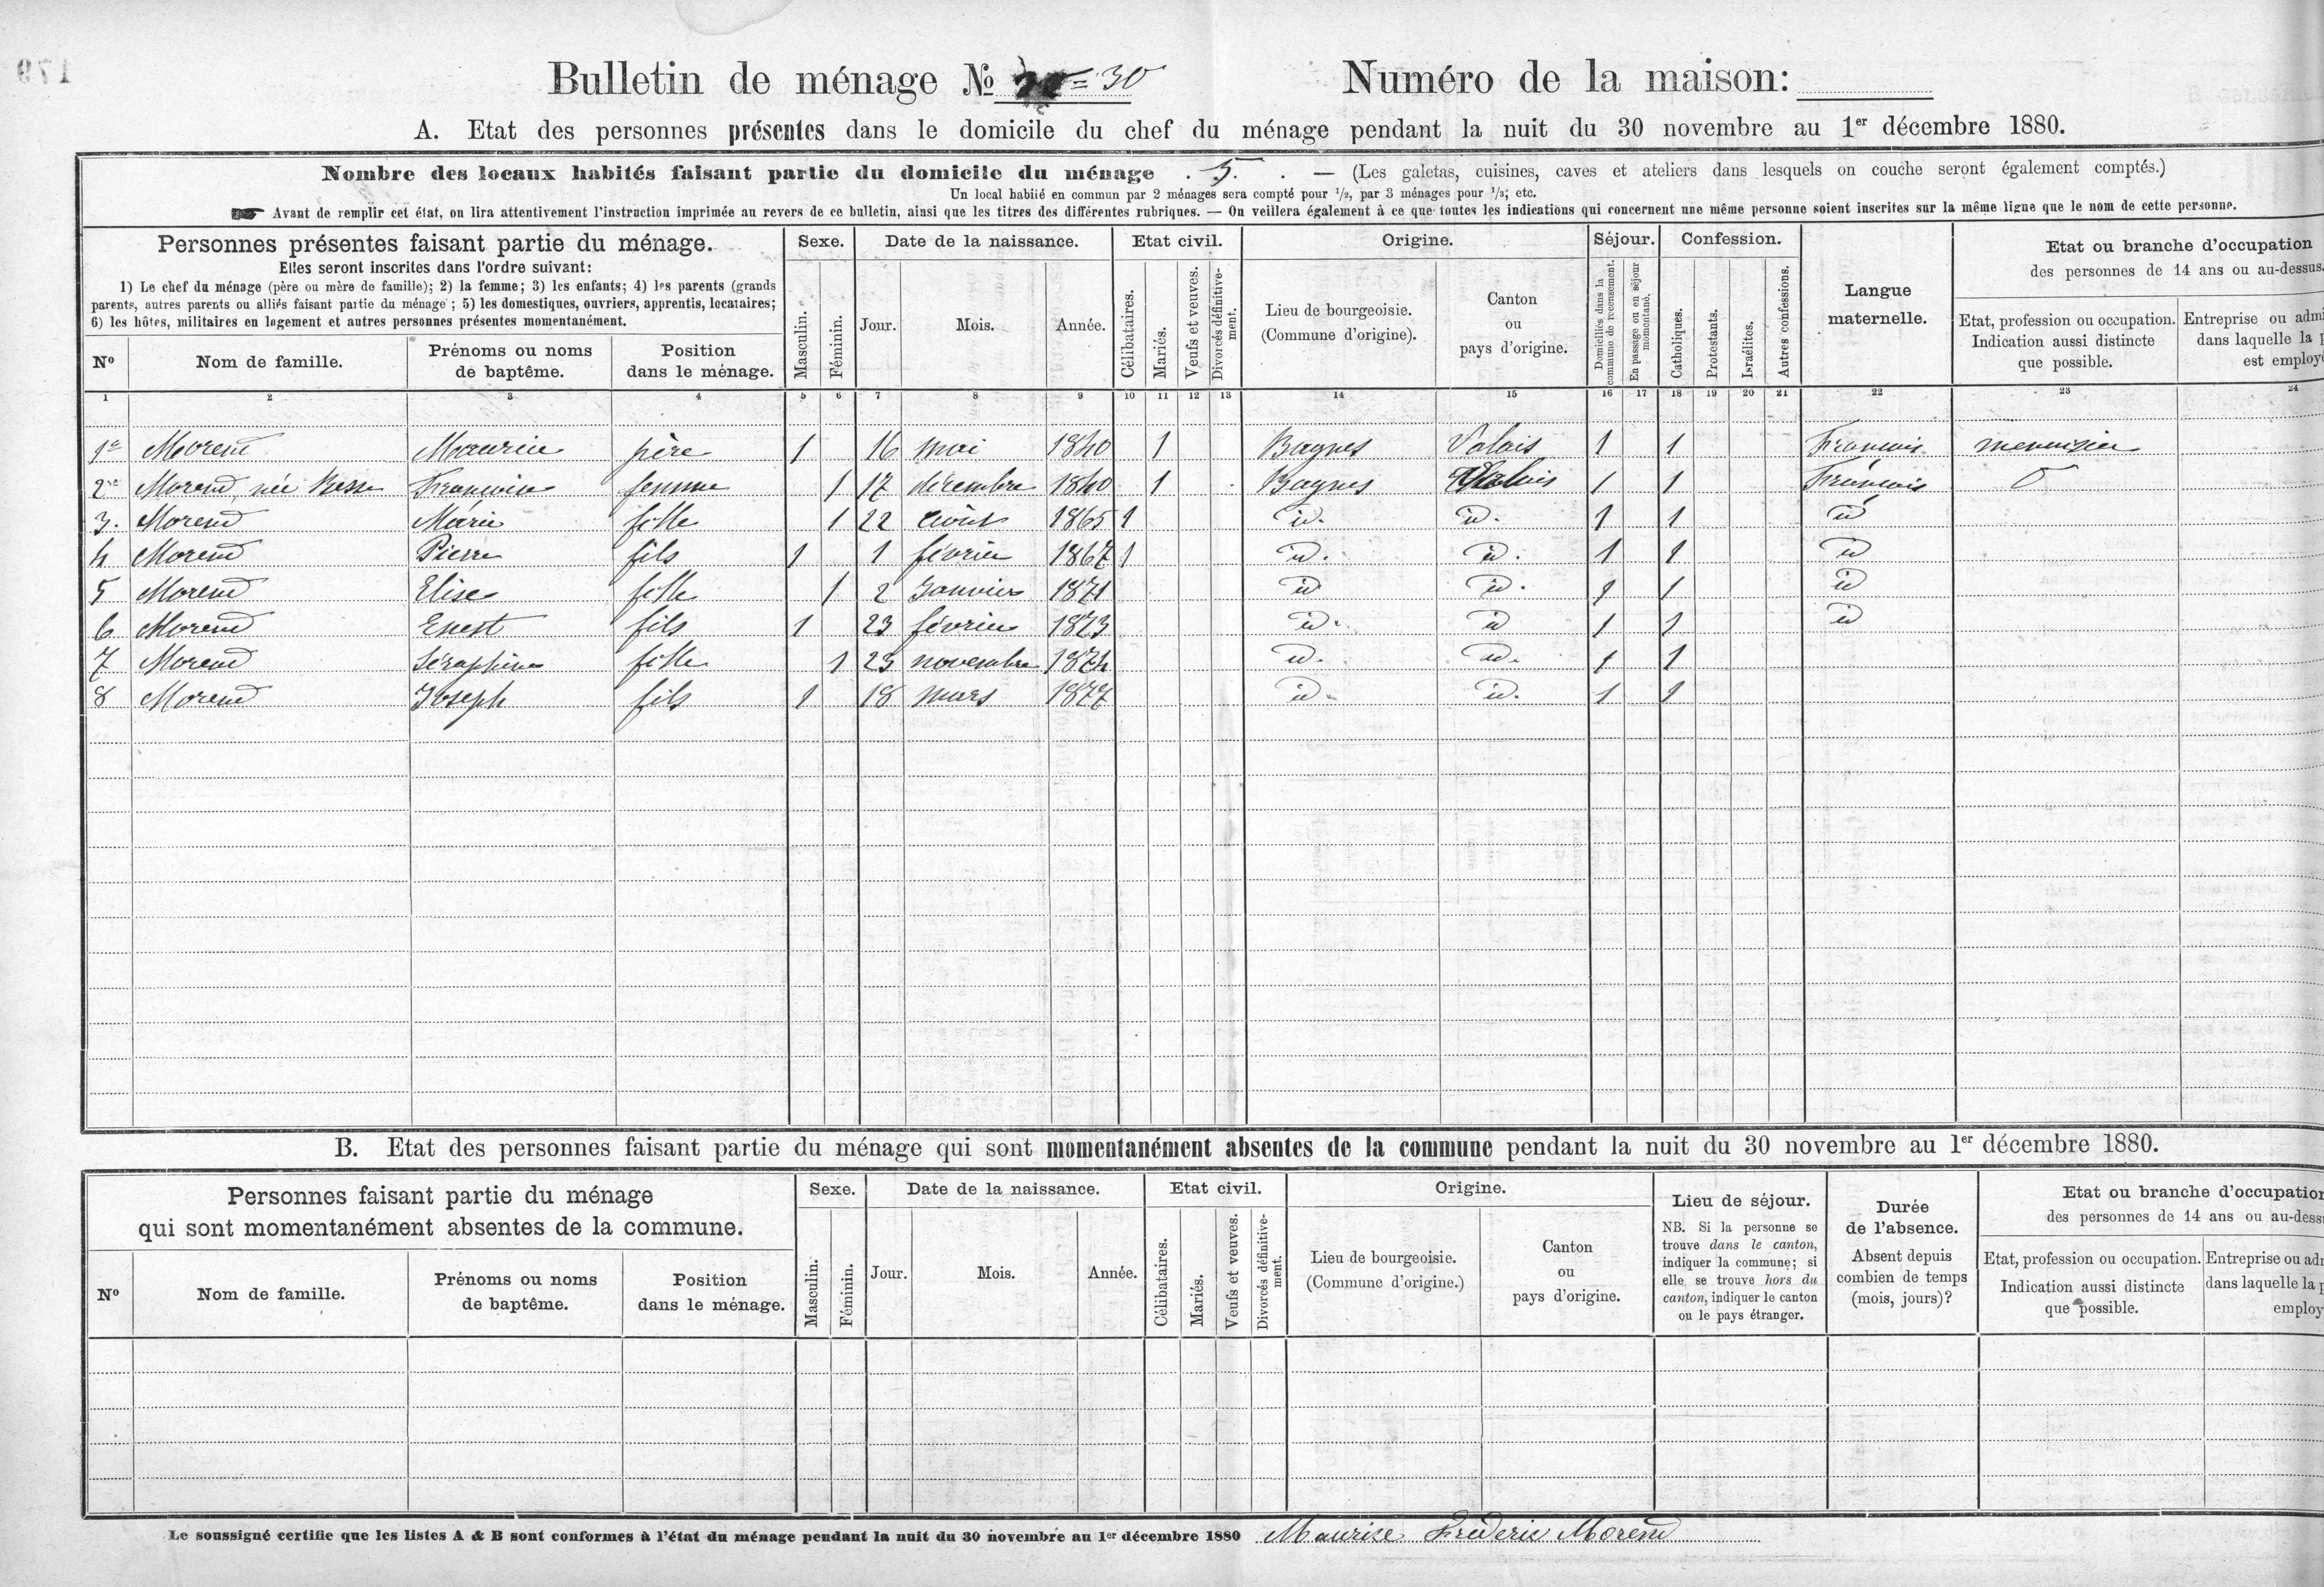 179
Bulletin de ménage № = 30 Numéro de la maison:
A. Etat des personnes présentes dans le domicile du chef du ménage pendant la nuit du 30 novembre au 1er décembre 1880.
Nombre des locaux habités faisant partie du domicile du ménage . 5. . — (Les galetas, cuisines, caves et ateliers dans lesquels on couche seront également comptés.)
Un local habité en commun par 2 ménages sera compté pour 1/2, par 3 ménages pour 1/3; etc.
Avant de remplir cet état, on lira attentivement l'instruction imprimée au revers de ce bulletin, ainsi que les titres des différentes rubriques. — On veillera également à ce que toutes les indications qui concernent une même personne soient inscrites sur la même ligne que le nom de cette personne.
Personnes présentes faisant partie du ménage.
Elles seront inscrites dans l'ordre suivant:
1) Le chef du ménage (père ou mère de famille); 2) la femme; 3) les enfants; 4) les parents (grands
parents, autres parents ou alliés faisant partie du ménage; 5) les domestiques, ouvriers, apprentis, locataires;
6) les hôtes, militaires en logement et autres personnes présentes momentanément.
Nº
Nom de famille.
Prénoms ou noms
de baptême.
Position
dans le ménage.
Sexe.
Masculin.
Féminin.
Date de la naissance.
Jour.
Mois.
Année.
Etat civil.
Célibataires.
Mariés.
Veufs et veuves.
Divorcés définitive-
ment.
Origine.
Lieu de bourgeoisie.
(Commune d'origine).
Canton
ou
pays d'origine.
Séjour.
Domiciliés dans la
commune de recensement.
En passage ou en séjour
momentané.
Confession.
Catholiques.
Protestants.
Israélites.
Autres confessions.
Langue
maternelle.
Etat ou branche d'occupation
des personnes de 14 ans ou au-dessus.
Etat, profession ou occupation.
Indication aussi distincte
que possible.
Entreprise ou admi
dans laquelle la p
est employé
1 2 3 4 5 6 7 8 9 10 11 12 13 14 15 16 17 18 19 20 21 22 23 24
1e Morend Maurice père 1 16 mai 1840 1 Bagnes Valais 1 1 Francais menuisier
2e Morend, née Besse Francoise femme 1 17 décembre 1840 1 Bagnes Valais 1 1 Francais
3. Morend Marie fille 1 22 août 1865 1 id. id. 1 1 id
4 Morend Pierre fils 1 1 février 1867 1 id. id. 1 1 id
5 Morend Elise fille 1 2 Janvier 1871 id id. 1 1 id
6 Morend Enest fils 1 23 février 1873 id. id 1 1 id
7 Morend Séraphine fille 1 25 novembre 1874 id. id. 1 1
8 Morend Joseph fils 1 18 mars 1877 id. id. 1 1
B. Etat des personnes faisant partie du ménage qui sont momentanément absentes de la commune pendant la nuit du 30 novembre au 1er décembre 1880.
Personnes faisant partie du ménage
qui sont momentanément absentes de la commune.
Nº
Nom de famille.
Prénoms ou noms
de baptême.
Position
dans le ménage.
Sexe.
Masculin.
Féminin.
Date de la naissance.
Jour.
Mois.
Année.
Etat civil.
Célibataires.
Mariés.
Veufs et veuves.
Divorcés définitive-
ment.
Origine.
Lieu de bourgeoisie.
(Commune d'origine.)
Canton
ou
pays d'origine.
Lieu de séjour.
NB. Si la personne se
trouve dans le canton,
indiquer la commune; si
elle se trouve hors du
canton, indiquer le canton
ou le pays étranger.
Durée
de l'absence.
Absent depuis
combien de temps
(mois, jours)?
Etat ou branche d'occupation
des personnes de 14 ans ou au-dess
Etat, profession ou occupation.
Indication aussi distincte
que possible.
Entreprise ou adm
dans laquelle la p
employ
Le soussigné certifie que les listes A & B sont conformes à l'état du ménage pendant la nuit du 30 novembre au 1er décembre 1880 Maurise Frederic Morend